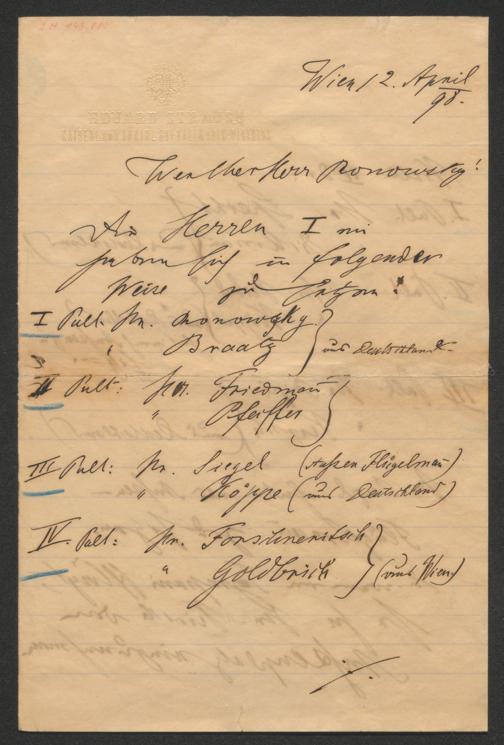 Wien 12. April
98.
Werther Herr Ronowsky!
Die Herren I ni
haben sich in folgender
Weise zu setzen:
I Pult. Hr. Monowzky
" Braatz } aus Deutschland.
II Pult: Hr. Friedman
" Pfeiffer
III Pult: Hr. Siegel (Außen Flügelman)
" Höppe (aus Deutschland)
IV. Pult: Hr. Forschneritsch
" Goldbrich } (aus Wien)
./.